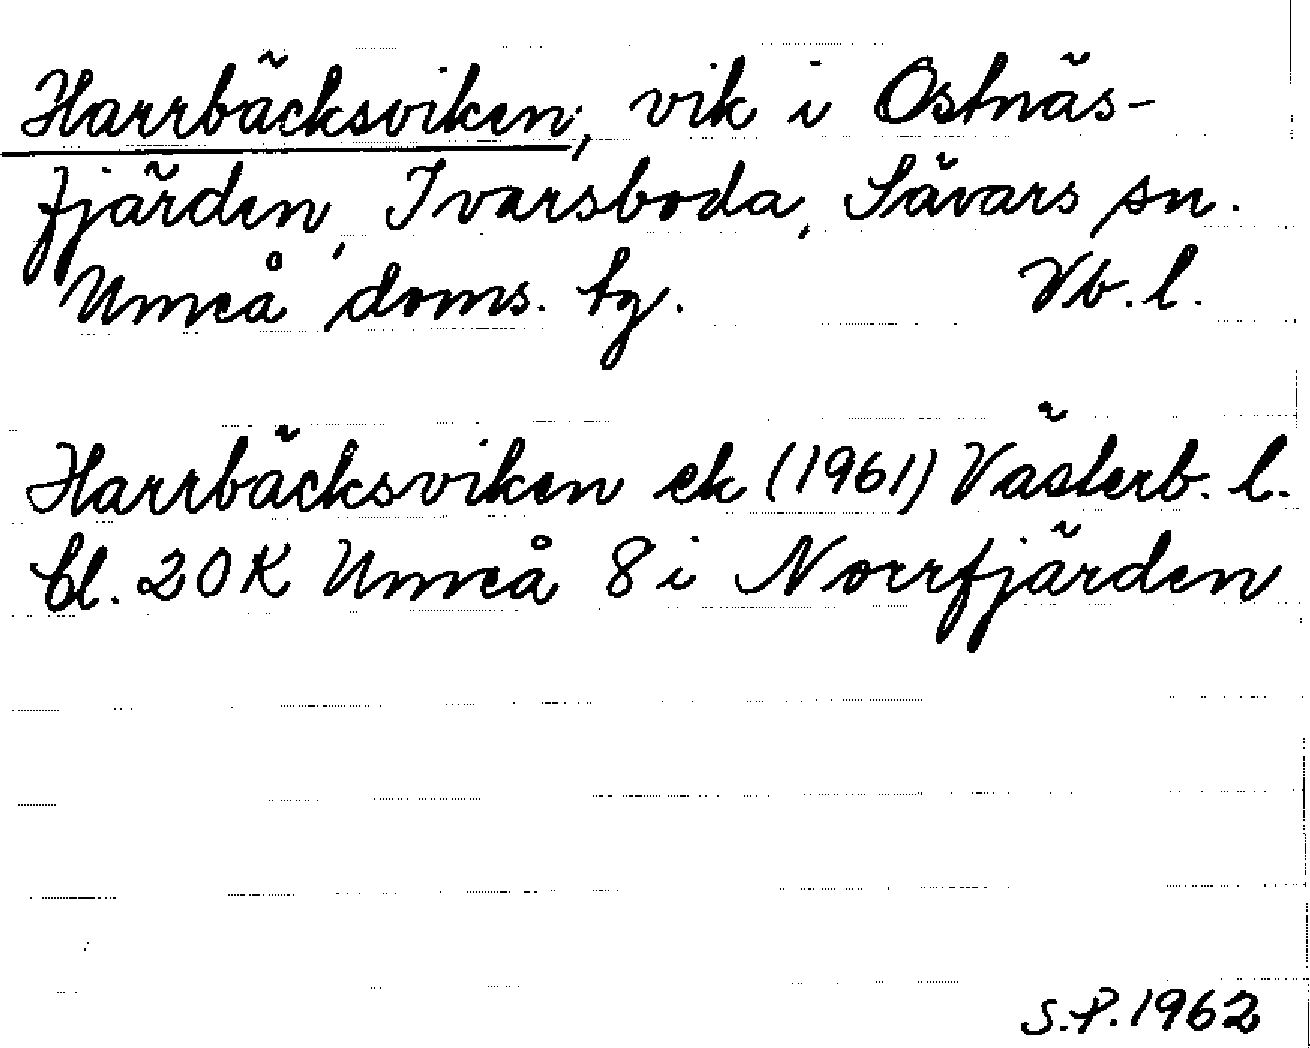 Harrbäcksviken, vik i Ostnäs-
fjärden, Ivarsboda, Sävars sn.
Umeå doms. tg. Vb. l.
Harrbäcksviken ek (1961) Västerb. l.
bl. 20 K Umeå 8 i Norrfjärden
S.P. 1962